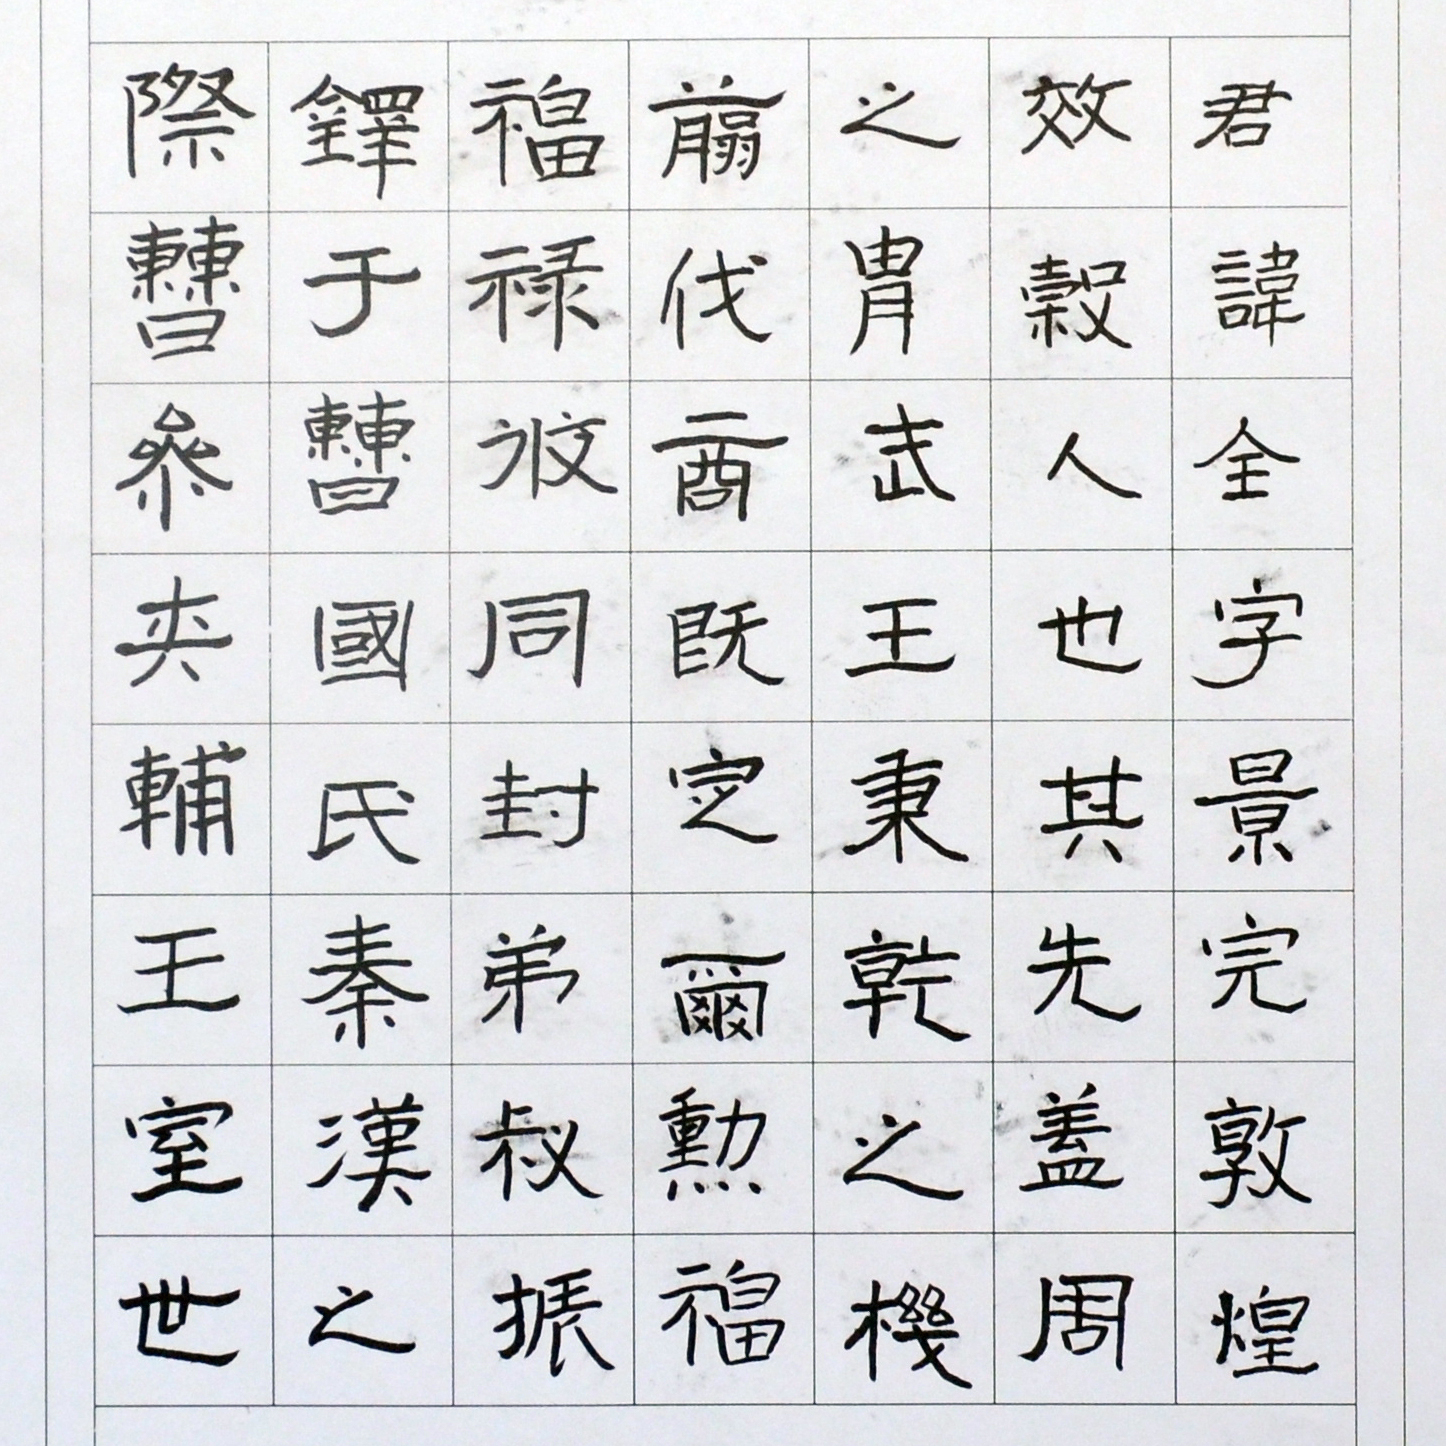 君諱全字景完敦煌
效穀人也其先盖周
之胄武王秉乾之機
翦伐商既定爾勲福
福禄攸同封弟叔振
鐸于曹國氏秦漢之
際曹參夾輔王室世